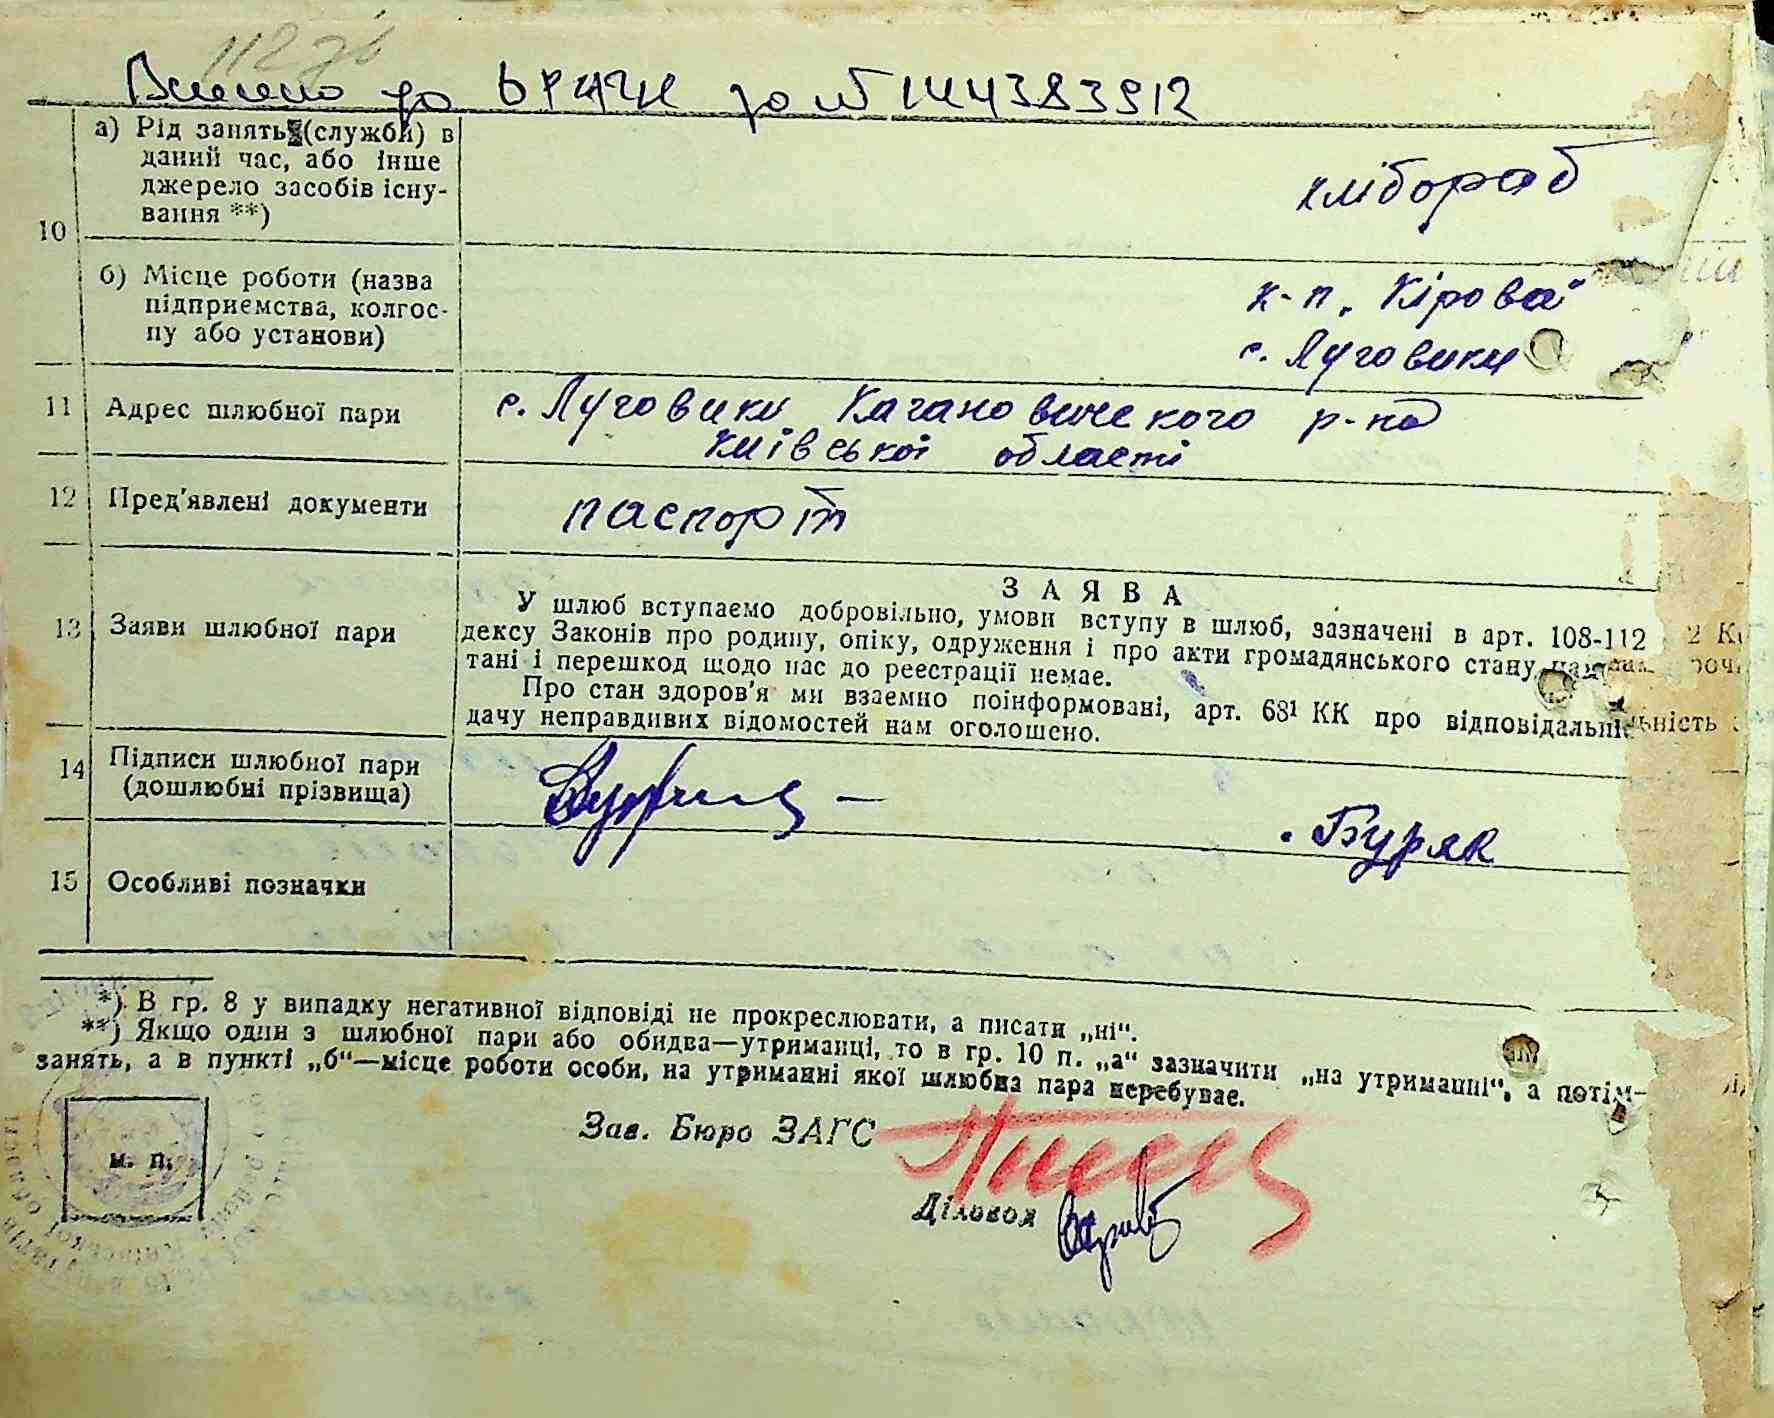 112 зв
Внесено до ДРАЦС за № 1444383912
10
а) Рід занять (служби) в
даний час, або інше
джерело засобів існу-
вання **)
хлібороб
б) Місце роботи (назва
підприємства, колгос-
пу або установи)
к-п. „Кірова"
с. Луговики
11 Адрес шлюбної пари
с. Луговики Кагановичського р-на
Київської області
12 Пред'явлені документи
паспорт
13 Заяви шлюбної пари
ЗАЯВА
У шлюб вступаємо добровільно, умови вступу в шлюб, зазначені в арт. 108-112
дексу Законів про родину, опіку, одруження і про акти громадянського стану,
тані і перешкод щодо нас до реестрації немає.
Про стан здоров'я ми взаємно поінформовані, арт. 68¹ КК про відповідальність
дачу неправдивих відомостей нам оголошено.
14 Підписи шлюбної пари
(дошлюбні прізвища)
Буряк
15 Особливі позначки
*) В гр. 8 у випадку негативної відповіді не прокреслювати, а писати „ні“.
**) Якщо один з шлюбної пари або обидва—утриманці, то в гр. 10 п. „а“ зазначити „на утриманні“, а потім—
занять, а в пункті „б“—місце роботи особи, на утриманні якої шлюбна пара перебуває.
м. п.
Зав. Бюро ЗАГС
Діловод